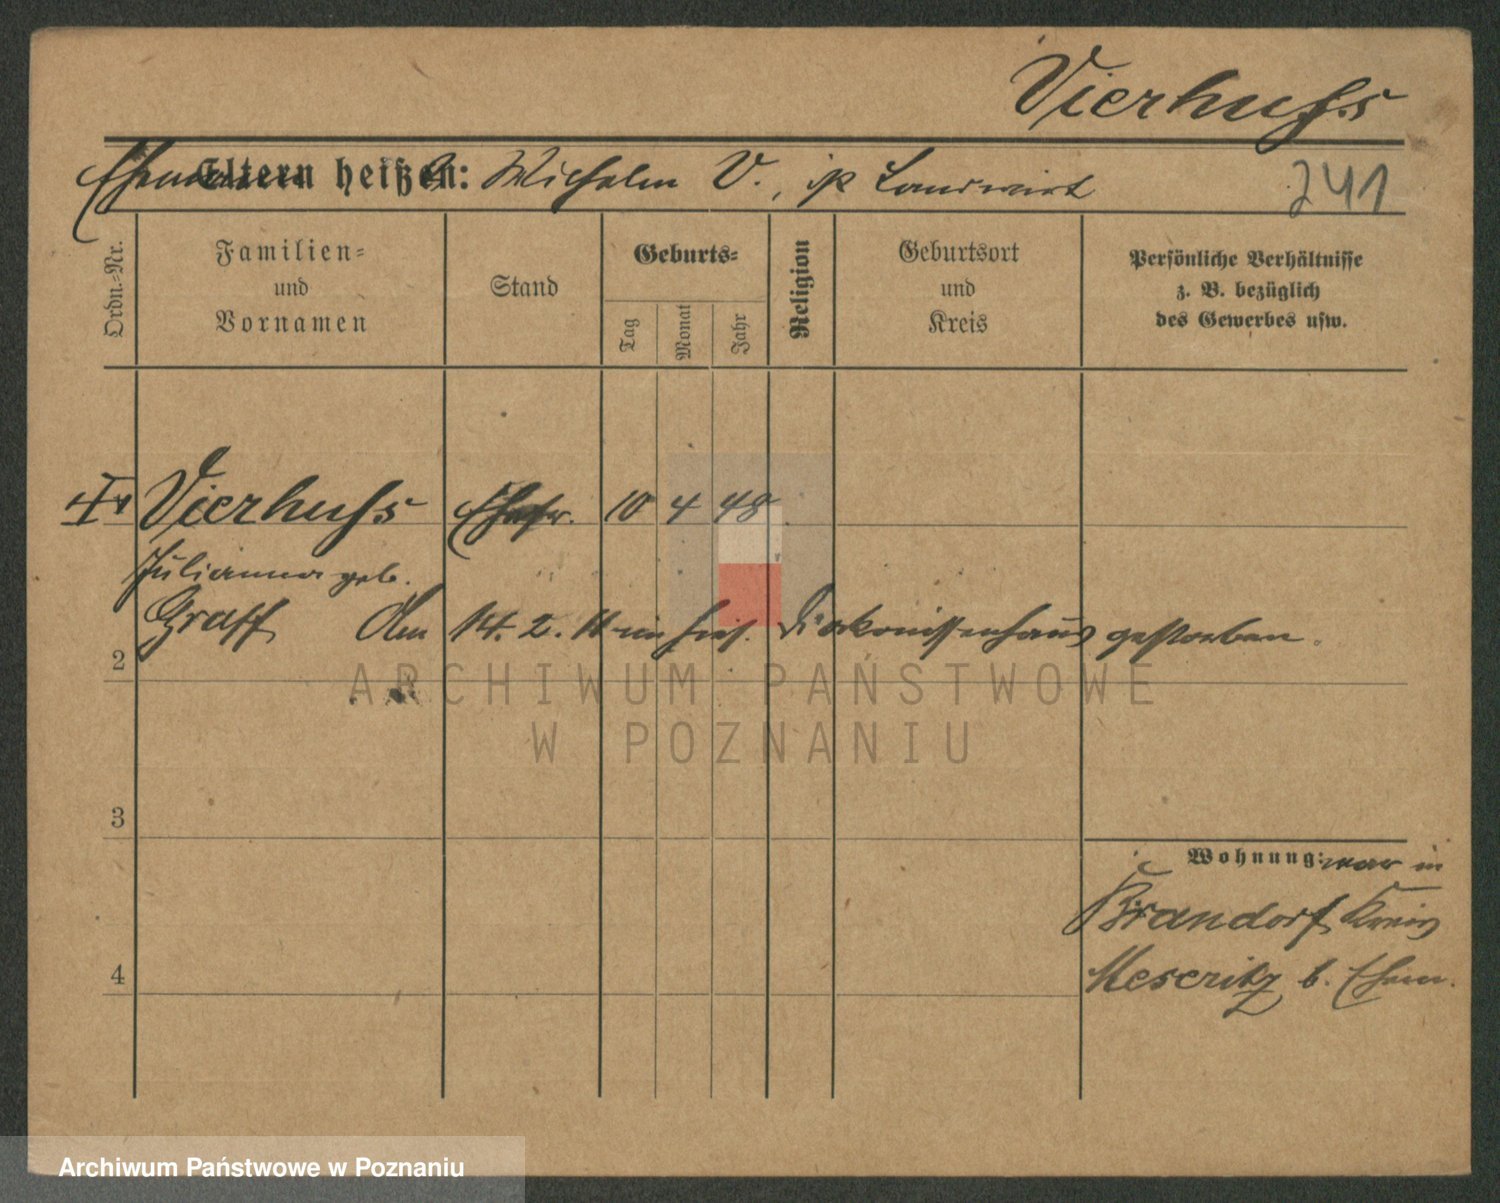 Vierhufs
Eltern heißen: Wilhelm V., ist Landwirt
241
Ordn.-Nr.
Familien- und Vornamen
Stand
Geburts-
Tag
Monat
Jahr
Religion
Geburtsort und Kreis
Persönliche Verhältnisse
z. B. bezüglich
des Gewerbes usw.
Vierhufs Ehefr. 10 4 48
Julianna geb.
Graff Am 14. 2. 11 im hies. Diakonissenhaus gestorben.
2
3
4
Wohnung: war in
Brandorf Kreis
Meseritz b. Ehem.
ARCHIWUM PAŃSTWOWE
W POZNANIU
Archiwum Państwowe w Poznaniu